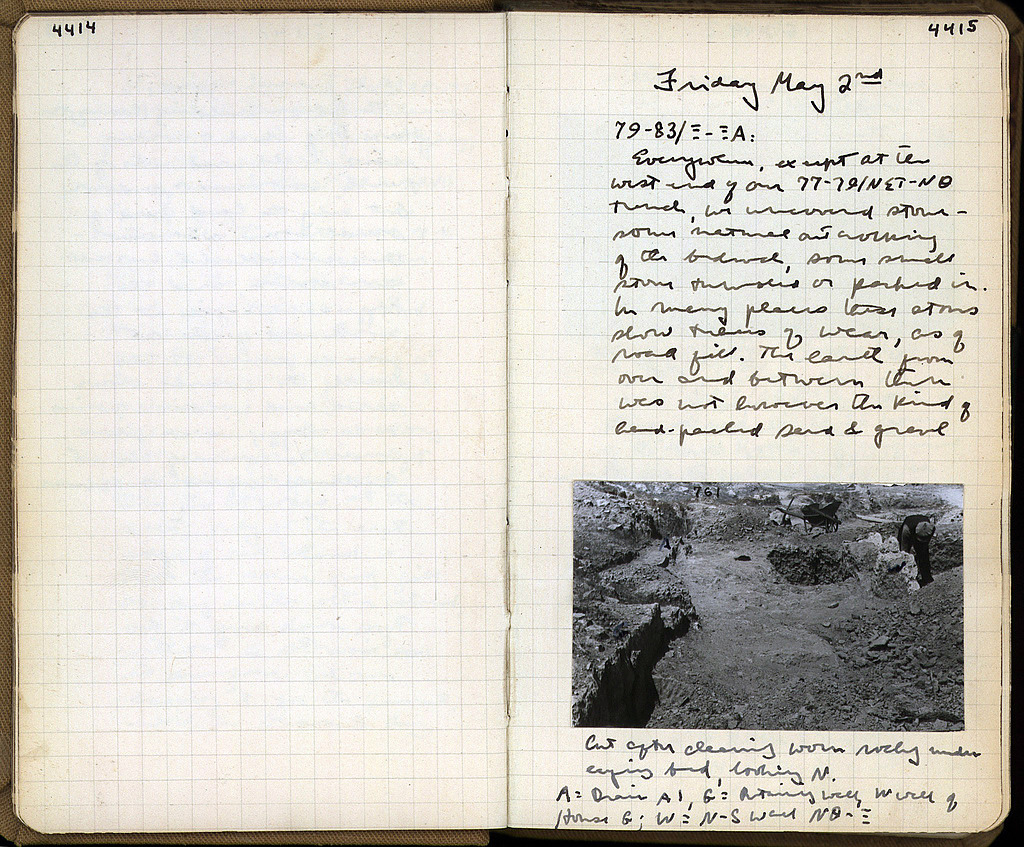 4414
4415
Friday May 2nd
79-83/Ξ-ΞA:
Everywhere, except at the
west end of our 77-79/ΝΣΤ-ΝΘ
trench, we uncovered stone -
some natural outcropping
of the bedrock, some small
stone or packed in.
In many places these stones
show traces of wear, as of
road fill. The earth from
over and between them
was not however the kind of
hard-packed sand & gravel
761
Cut after clearing worn rocky under
bed, looking N.
A = Drain A1, G = Retaining wall, W wall of
House G; W = N-S wall ΝΘ-Ξ